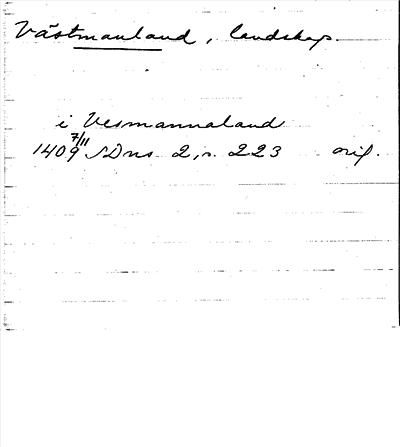 Västmanland, landskap.
i Vesmannaland
1409 7/11 SDns 2, s. 223 orig.